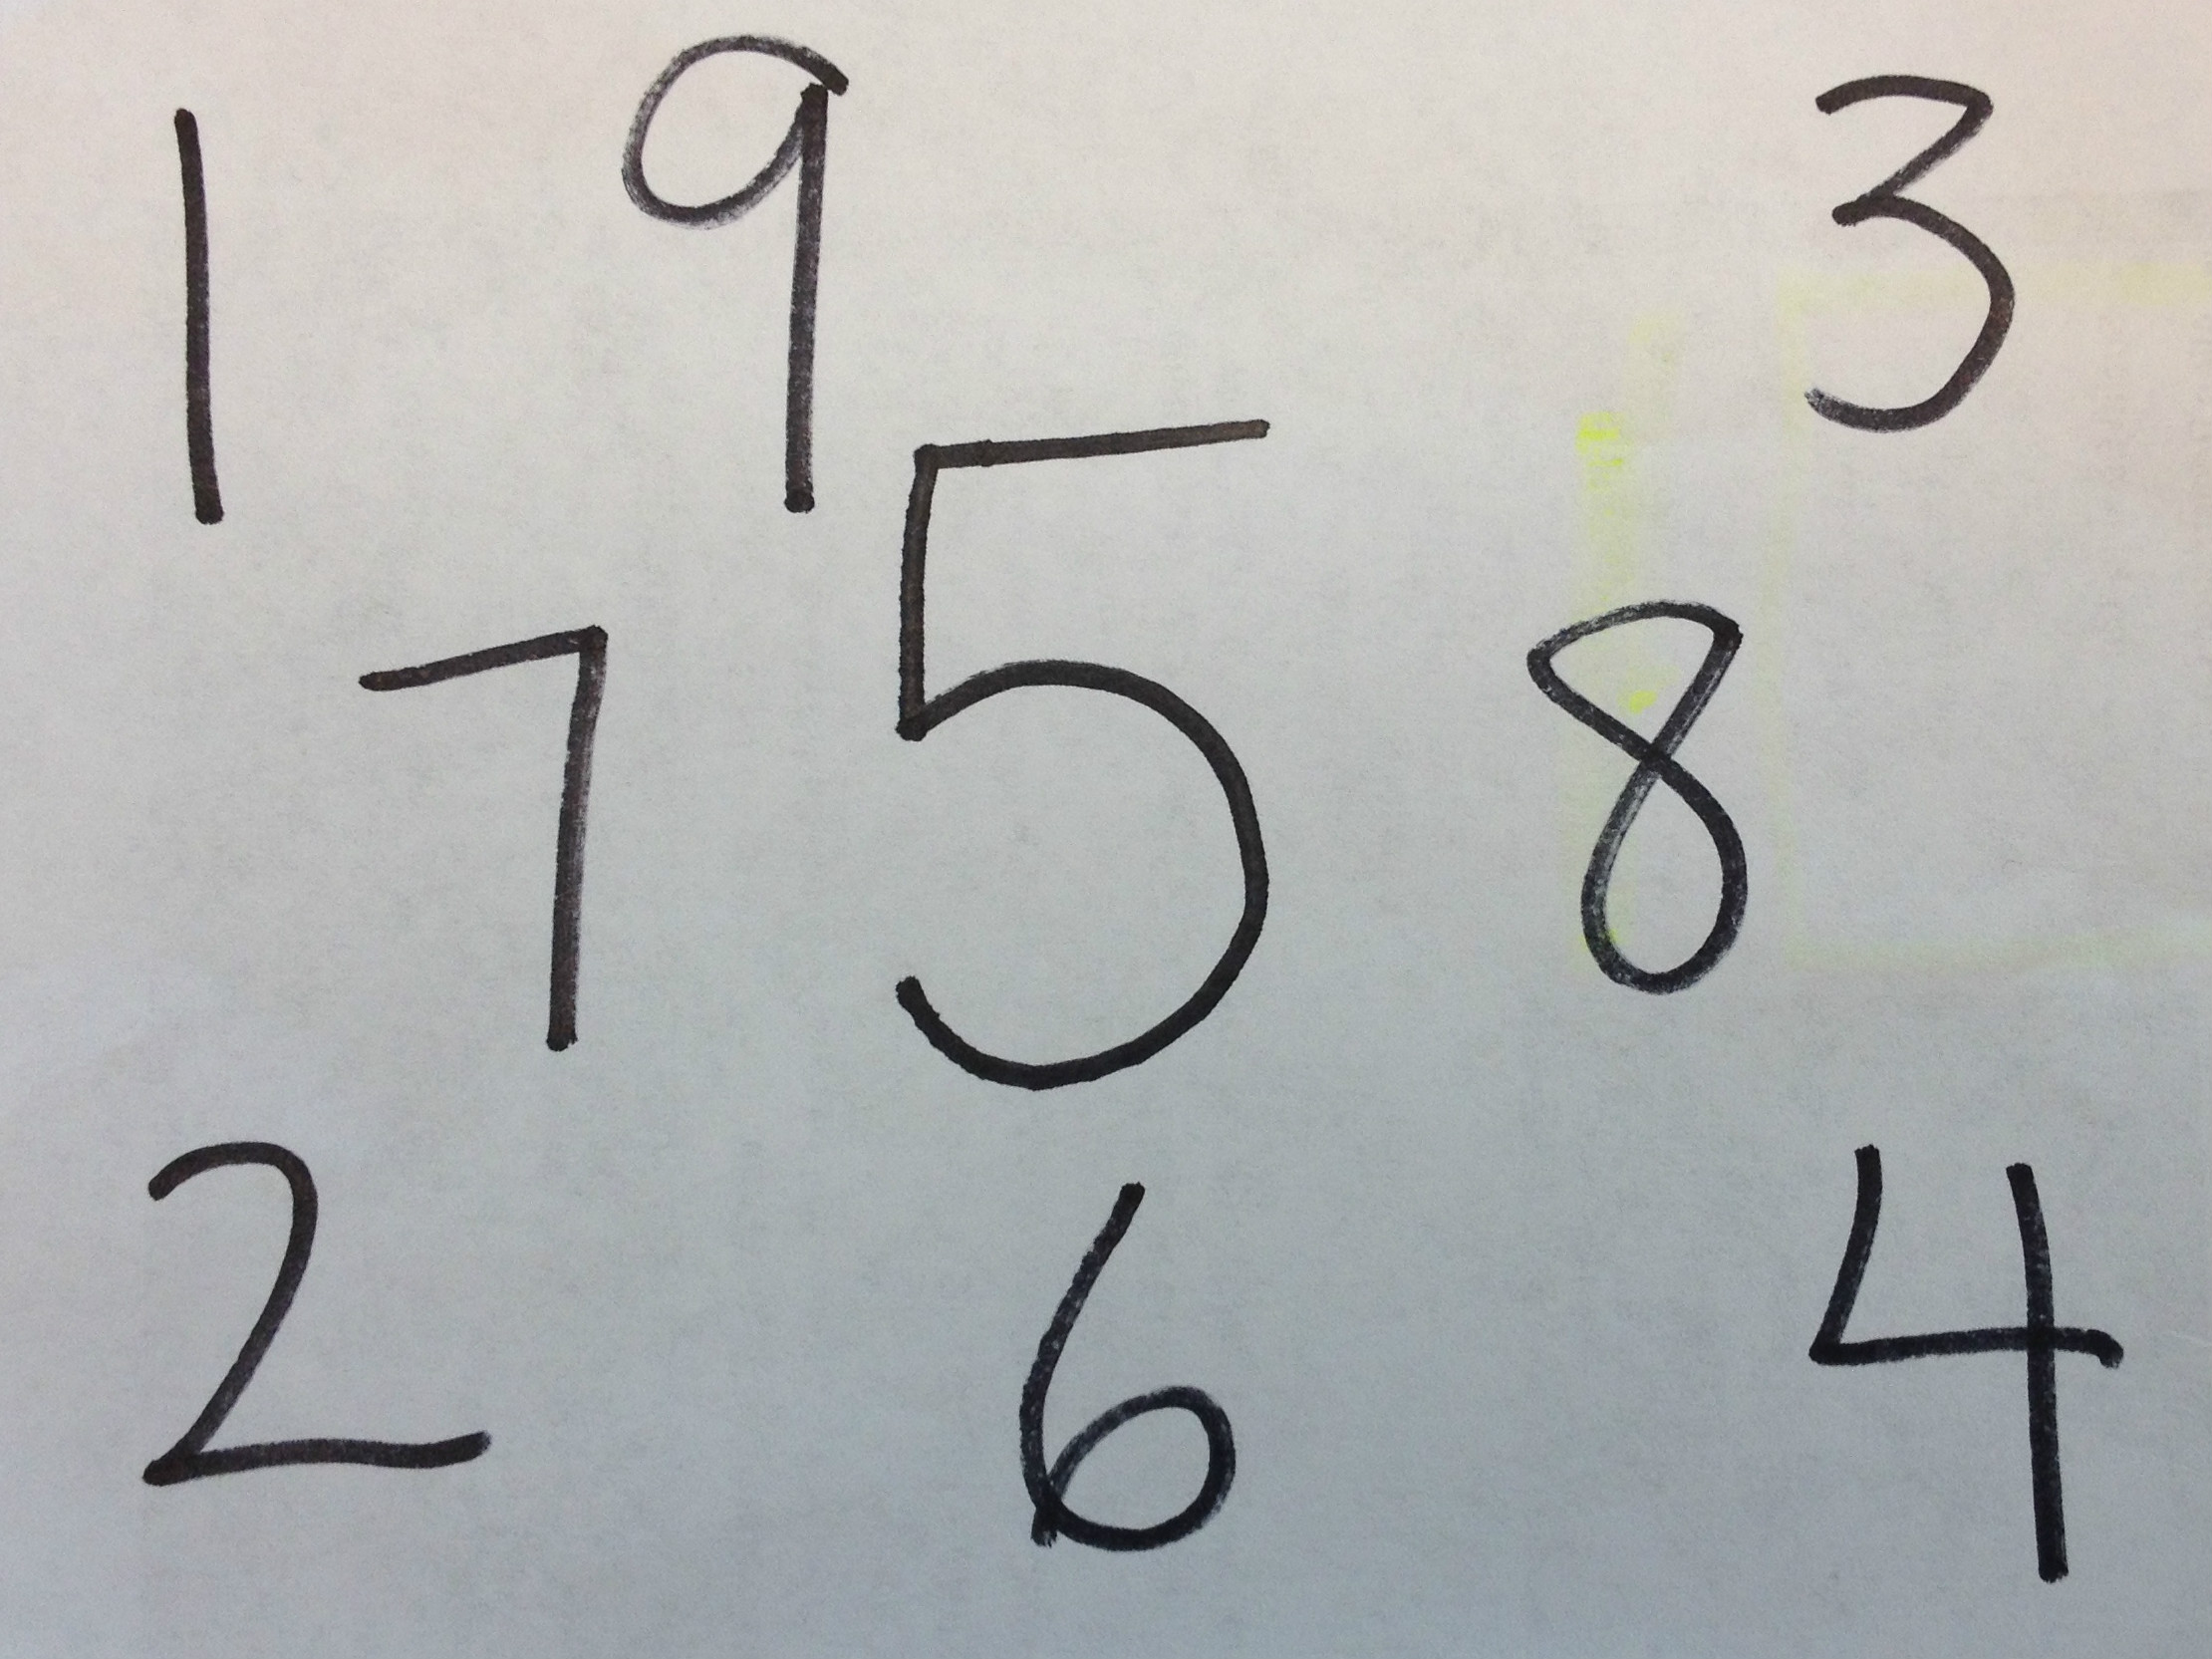 1 9 3
7 5 8
2 6 4